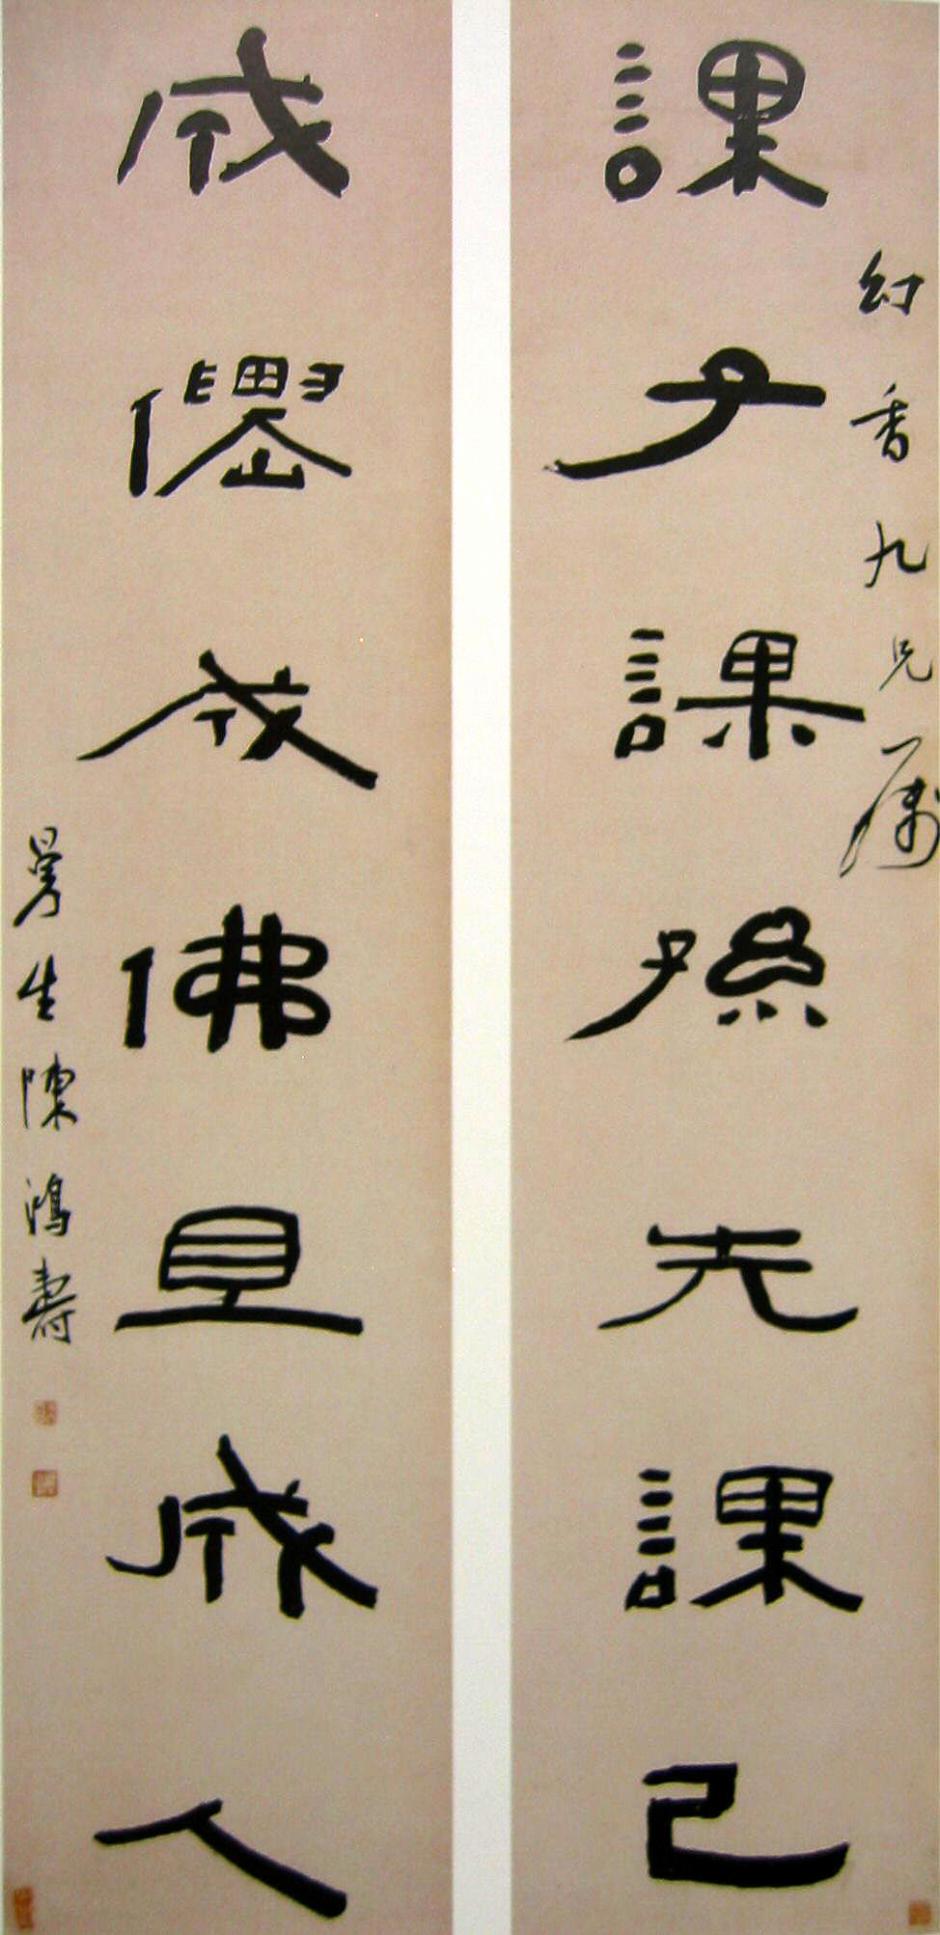 幻香九兄属
課子課孫先課己
成僊成佛且成人
曼生陳鴻壽